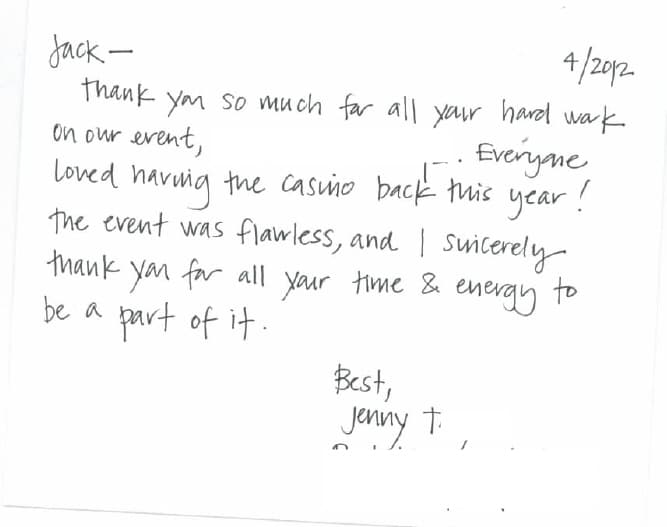 Jack —
4/2012
Thank you so much for all your hard work
on our event,
Everyone
loved having the casino back this year!
The event was flawless, and I sincerely
thank you for all your time & energy to
be a part of it.
Best,
Jenny T.